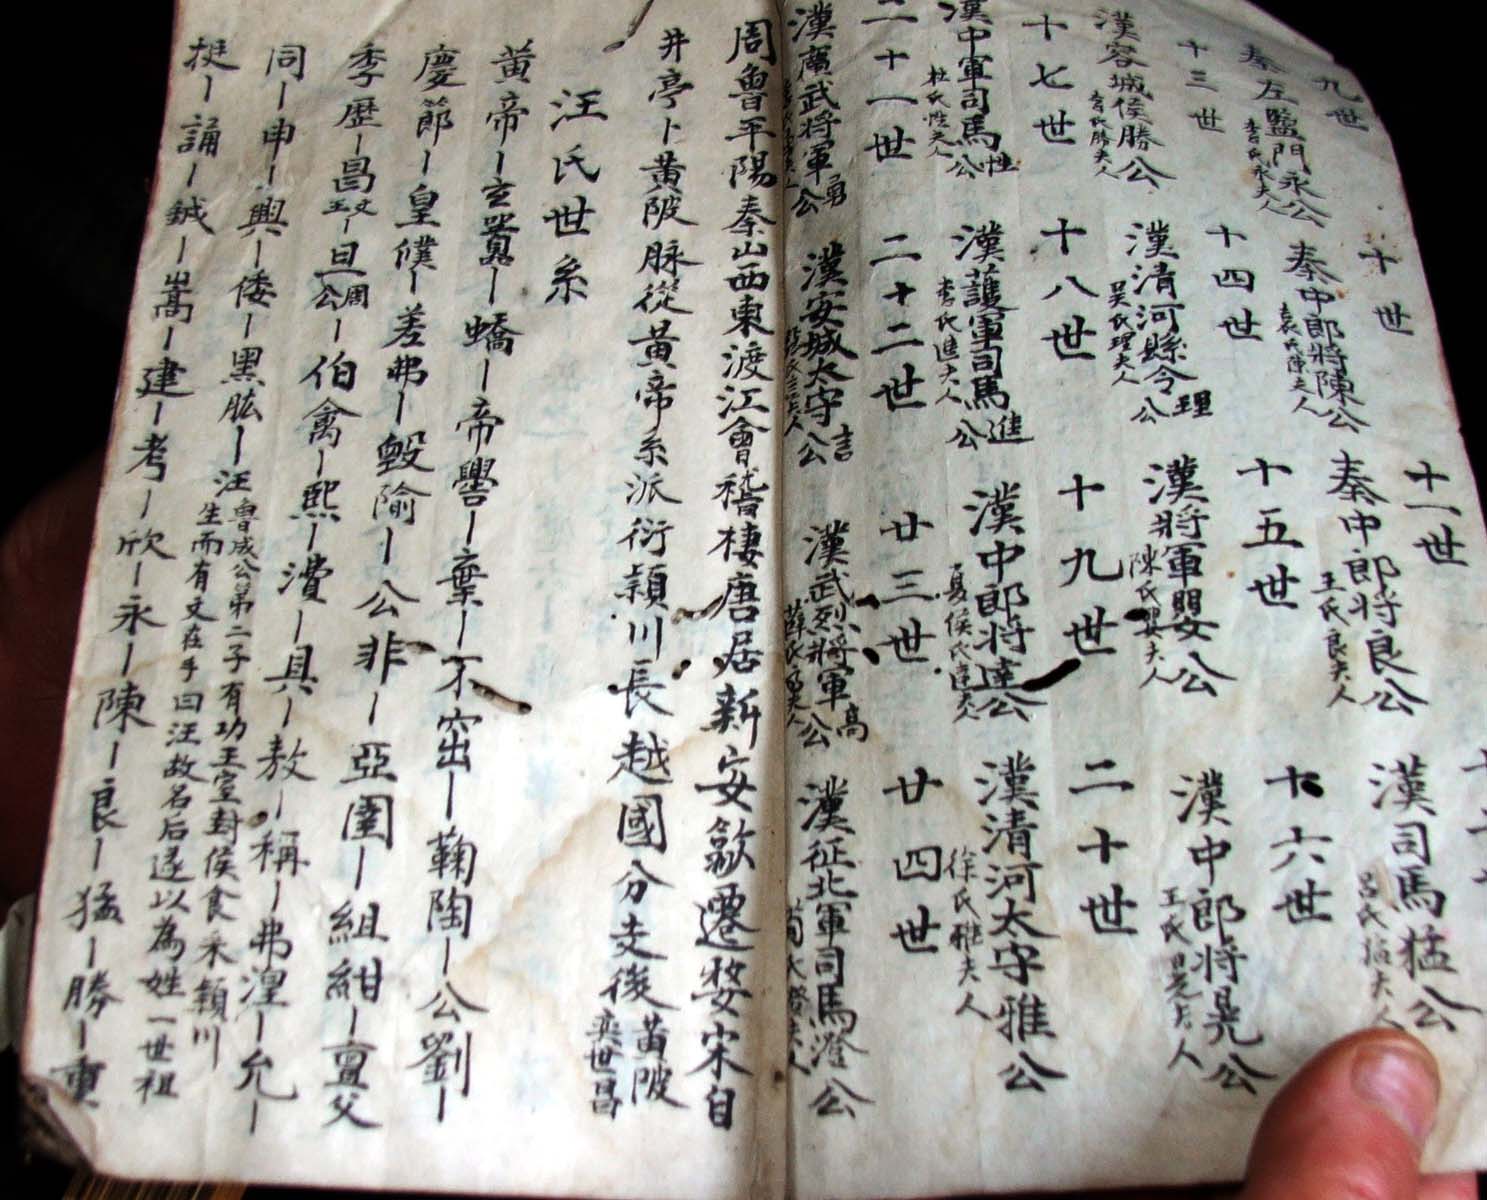 九世
秦左監門永公
李氏永夫人
十世
秦中郎將陳公
袁氏陳夫人
十一世
秦中郎将良公
王氏良夫人
漢司馬猛公
呂氏猛夫人
十三世
漢容城侯勝公
李氏勝夫人
十四世
漢清河縣令理公
吴氏理夫人
十五世
漢將軍嬰公
陳氏嬰夫人
十六世
漢中郎將晃公
王氏晃夫人
十七世
漢中軍司馬性公
杜氏性夫人
十八世
漢護軍司馬進公
李氏進夫人
十九世
漢中郎將達公
夏侯氏達夫人
二十世
漢清河太守雅公
徐氏雅夫人
二十一世
漢廣武将軍勇公
二十二世
漢安城太守吉公
廿三世
漢武烈將軍高公
廿四世
漢征北軍司馬澄公
周魯平陽秦山西東渡江會稽棲唐居新安歙遷婺宋自
井亭卜黄陂脉從黄帝系派衍潁川長越國分支後黄陂奕世昌
汪氏世系
黄帝–玄囂–蟜–帝嚳–棄–不窋–鞠陶–公劉–
慶節–皇僕–差弗–毀隃–公非–亞圉–組紺–亶父
季歷–昌文王–旦周公–伯禽–熙–濆–具–敖–稱–弗湟–允–
同–申–興–倭–黑肱–汪魯成公第二子有功王室封侯食采潁川
生而有文在手曰汪故名后遂以為姓一世祖
挺–誦–鉞–嵩–建–考–欣–永–陳–良–猛–勝–重